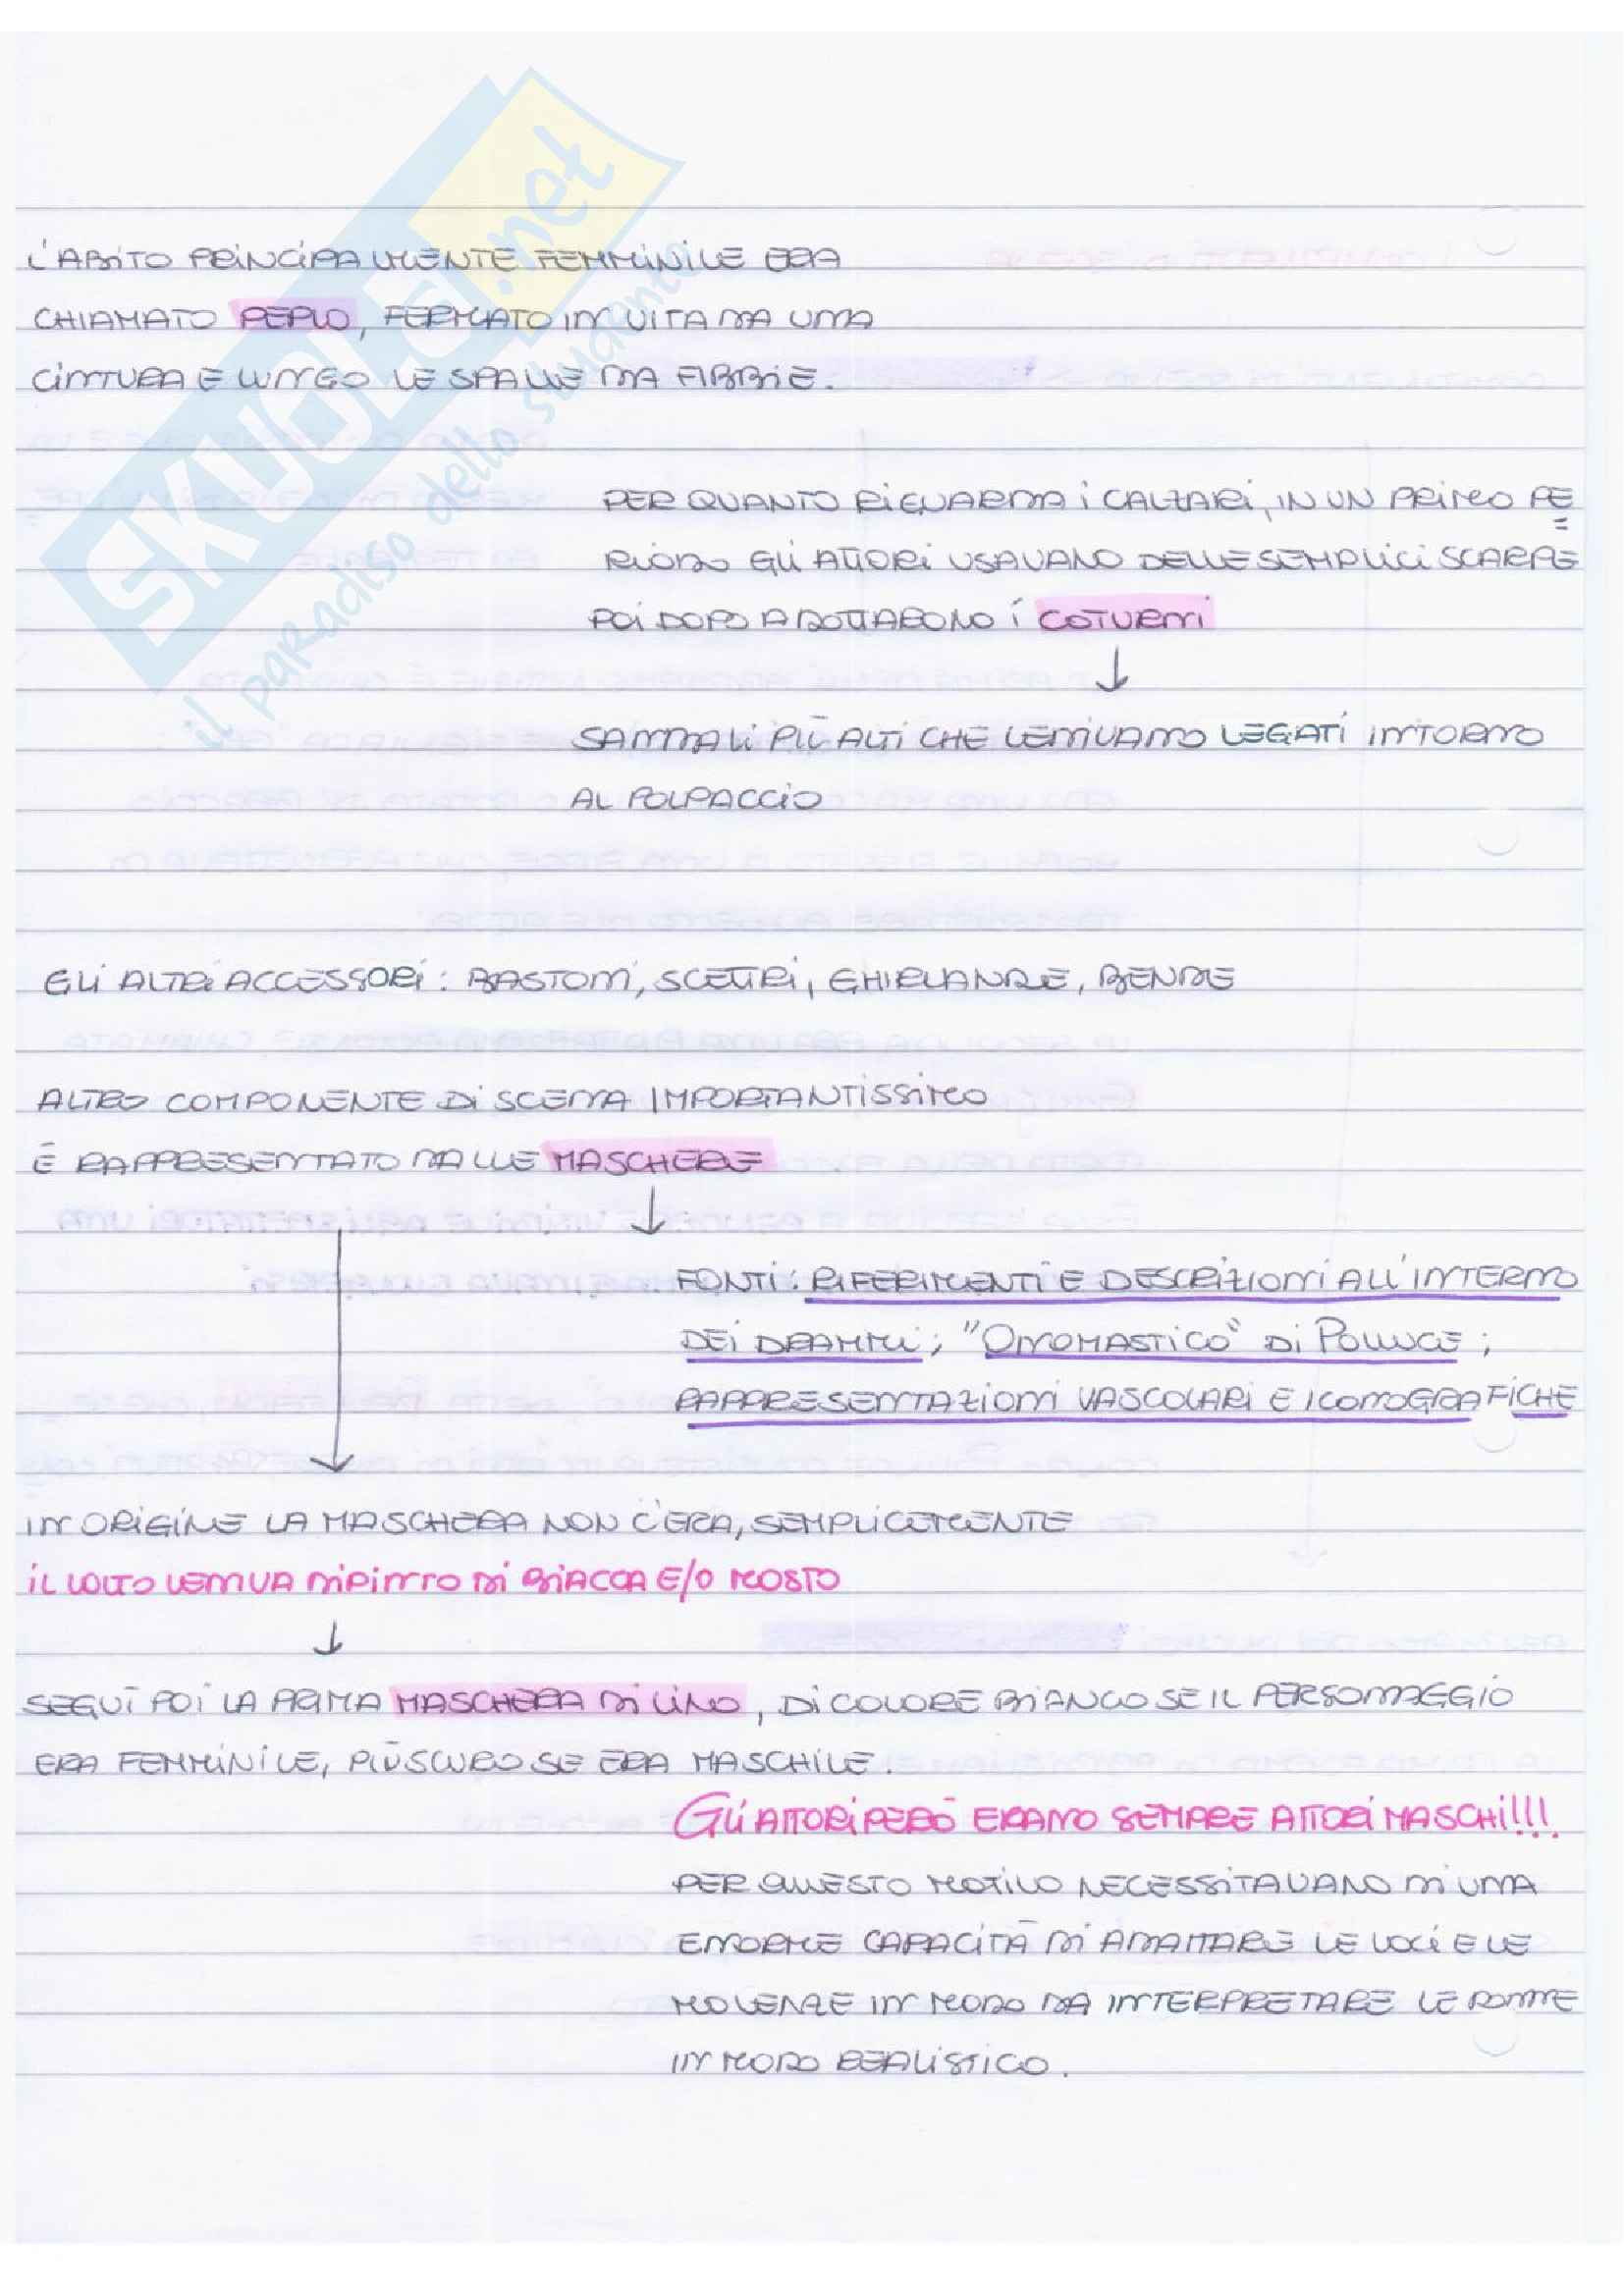 SKUOLA.net
il paradiso dello studente
L'ABITO PRINCIPALMENTE FEMMINILE ERA
CHIAMATO PEPLO, FERMATO IN VITA DA UNA
CINTURA E LUNGO LE SPALLE DA FIBBIE.
PER QUANTO RIGUARDA I CALZARI, IN UN PRIMO PE
RIODO GLI ATTORI USAVANO DELLE SEMPLICI SCARPE
POI DOPO ADOTTARONO I COTURNI
↓
SANDALI PIÙ ALTI CHE VENIVANO LEGATI INTORNO
AL POLPACCIO
GLI ALTRI ACCESSORI: BASTONI, SCETTRI, GHIRLANDE, BENDE
ALTRO COMPONENTE DI SCENA IMPORTANTISSIMO
È RAPPRESENTATO DALLE MASCHERE
↓
FONTI: RIFERIMENTI E DESCRIZIONI ALL'INTERNO
DEI DRAMMI; "ONOMASTICO" DI POLLUCE;
RAPPRESENTAZIONI VASCOLARI E ICONOGRAFICHE
↓
IN ORIGINE LA MASCHERA NON C'ERA, SEMPLICEMENTE
IL VOLTO VENIVA DIPINTO DI BIACCA E/O MOSTO
↓
SEGUÌ POI LA PRIMA MASCHERA DI LINO, DI COLORE BIANCO SE IL PERSONAGGIO
ERA FEMMINILE, PIÙ SCURO SE ERA MASCHILE.
GLI ATTORI PERÒ ERANO SEMPRE ATTORI MASCHI!!!
PER QUESTO MOTIVO NECESSITAVANO DI UNA
ENORME CAPACITÀ DI ADATTARE LE VOCI E LE
MOVENZE IN MODO DA INTERPRETARE LE DONNE
IN MODO REALISTICO.